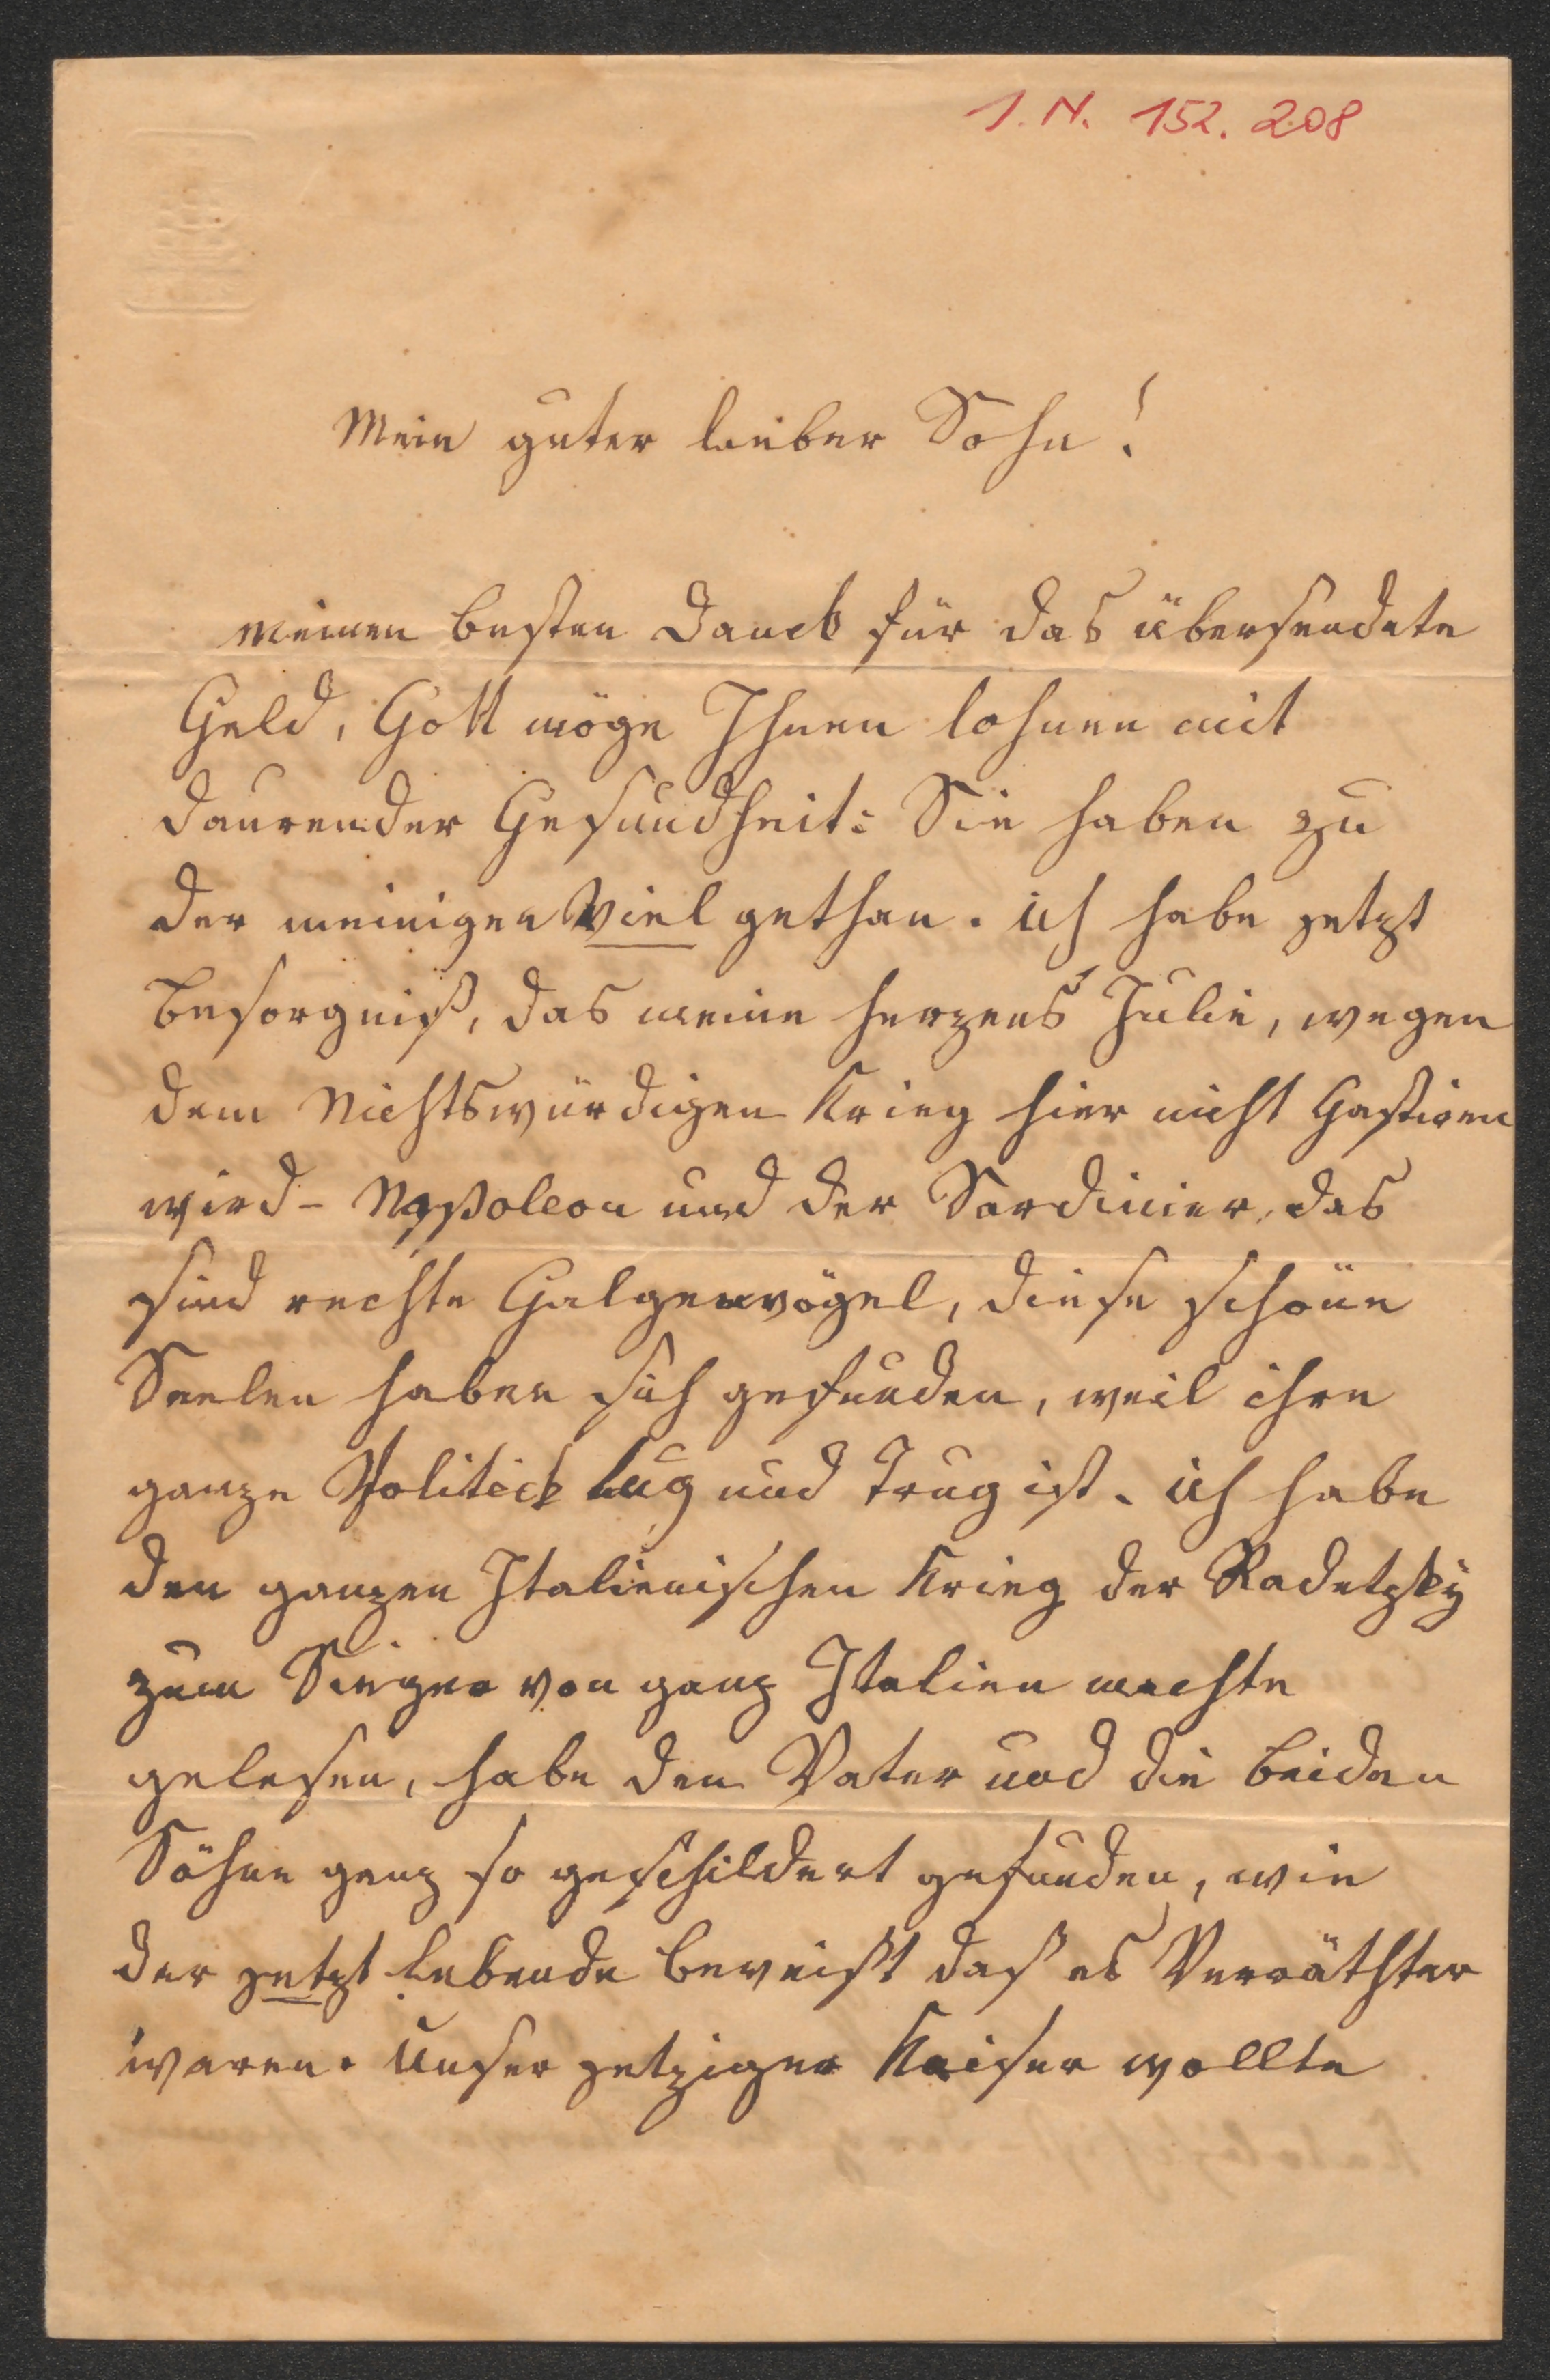 I. N. 152.208
Mein guter lieber Sohn!
meinen besten Danck für das übersendete
Geld, Gott möge Ihnen lohnen mit
daurender Gesundheit: Sie haben zu
der meinigen viel gethan. ich habe jetzt
besorgniß, das meine herzens Julie, wegen
dem Nichtswürdigen Krieg hier nicht Gastiren
wird - Nappoleon und der Sardinier, das
sind rechte Galgenvögel, diese schöne
Seelen haben sich gefunden, weil ihre
ganze Politick lug und trug ist. ich habe
den ganzen Italienischen Krieg der Radetzky
zum Sieger von ganz Italien machte
gelesen, habe den Vater und die beiden
Söhne ganz so geschildert gefunden, wie
der jetzt lebende beweißt daß es Verräthter
waren. Unser jetziger Kaiser wollte